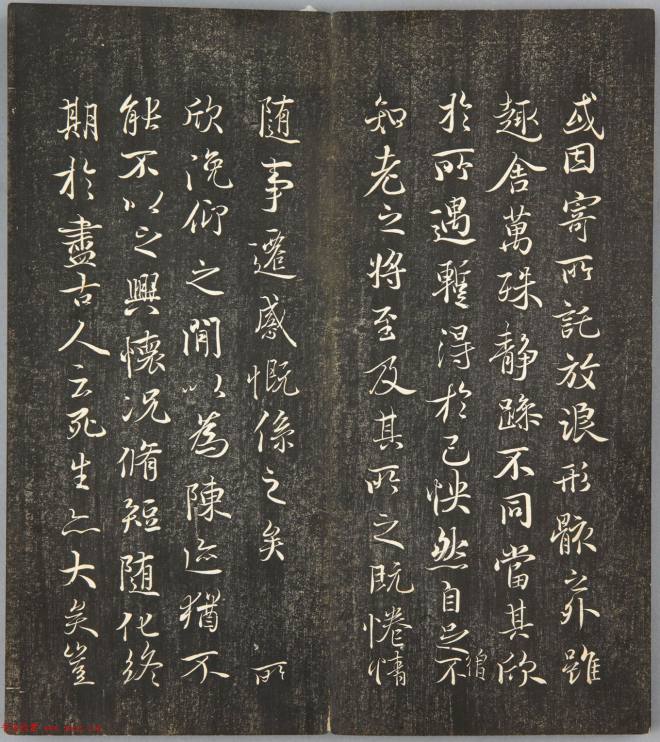 或因寄所託放浪形骸之外雖
趣舍萬殊靜躁不同當其欣
於所遇暫得於己怏然自足不
僧
知老之將至及其所之既惓情
随事遷感慨係之矣 所
欣俛仰之閒以為陳迹猶不
能不以之興懷況脩短随化終
期於盡古人云死生亦大矣豈